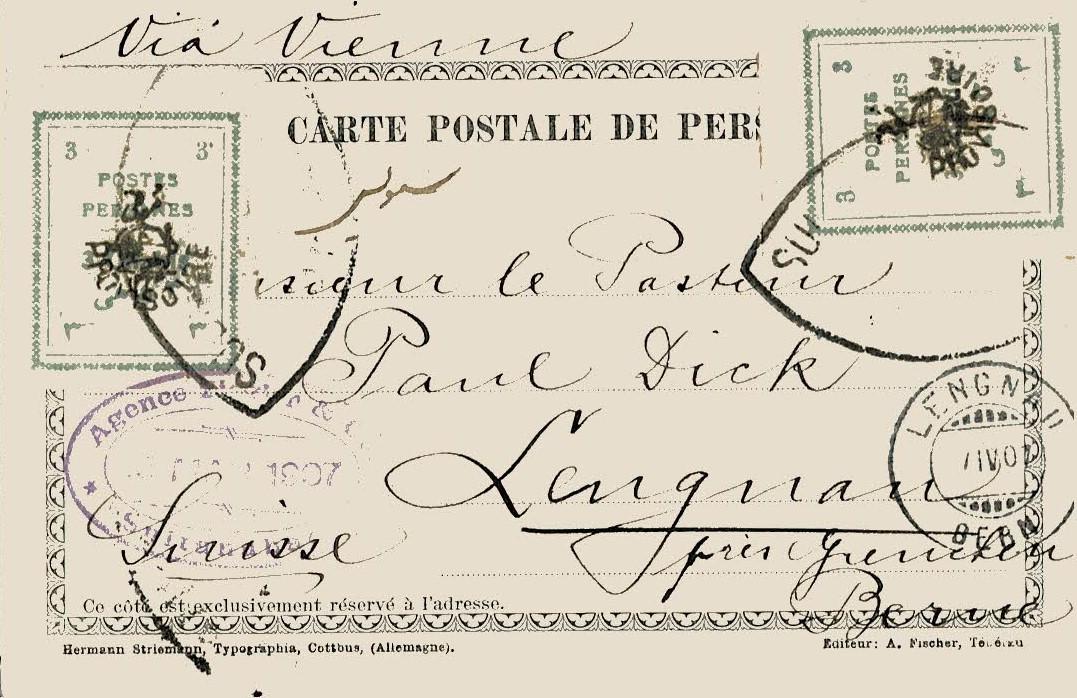 Viâ Vienne
CARTE POSTALE DE PERS
3 3
POSTES
PERSANES
PROVISOIRE
3 3
POSTES
PERSANES
PROVISOIRE
۳ ۳
سویس
sieur le Pasteur
Paul Dick
Lengnau
près Grenchen
Berne
Suisse
Agence & 
1907
Sultanabad
SUL
SUL
LENGNAU
7 IV 07
BERN
Ce côté est exclusivement réservé à l'adresse.
Hermann Striemann, Typographia, Cottbus, (Allemagne).
Editeur: A. Fischer, Téhéran